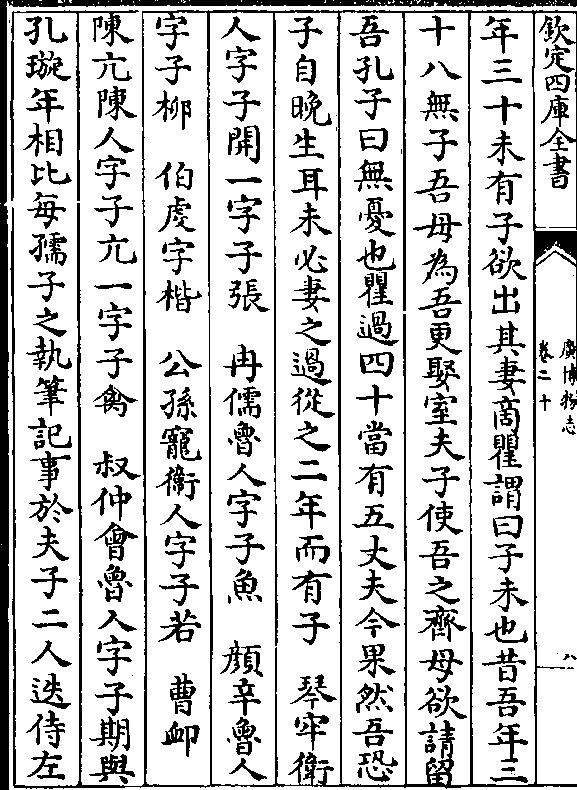 欽定四庫全書
廣博物志
卷二十
八
年三十未有子欲出其妻商瞿謂曰子未也昔吾年三
十八無子吾母為吾更娶室夫子使吾之齊母欲請留
吾孔子曰無憂也瞿過四十當有五丈夫今果然吾恐
子自晚生耳未必妻之過從之二年而有子 琴牢衛
人字子開一字子張 冉儒魯人字子魚 顔辛魯人
字子柳 伯虔字楷 公孫寵衛人字子若 曹卹
陳亢陳人字子亢一字子禽 叔仲會魯人字子期與
孔璇年相比每孺子之執筆記事於夫子二人迭侍左